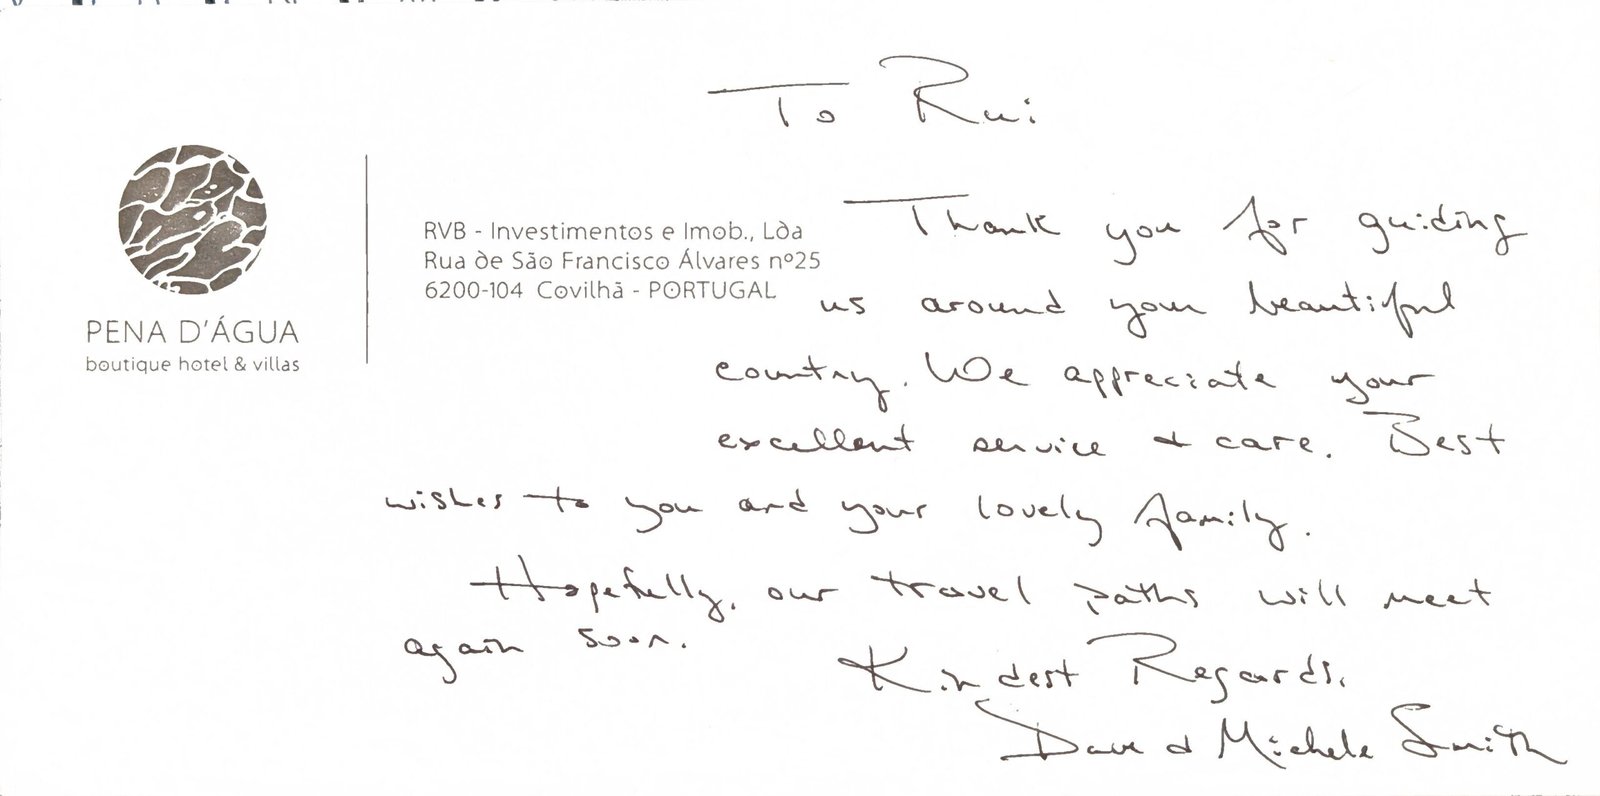 To Rui
PENA D'ÁGUA
boutique hotel & villas
RVB - Investimentos e Imob., Lda
Rua de São Francisco Álvares nº25
6200-104 Covilhã - PORTUGAL
Thank you for guiding
us around your beautiful
country. We appreciate your
excellent service & care. Best
wishes to you and your lovely family.
Hopefully, our travel paths will meet
again soon.
Kindest Regards,
Dave & Michele Smith